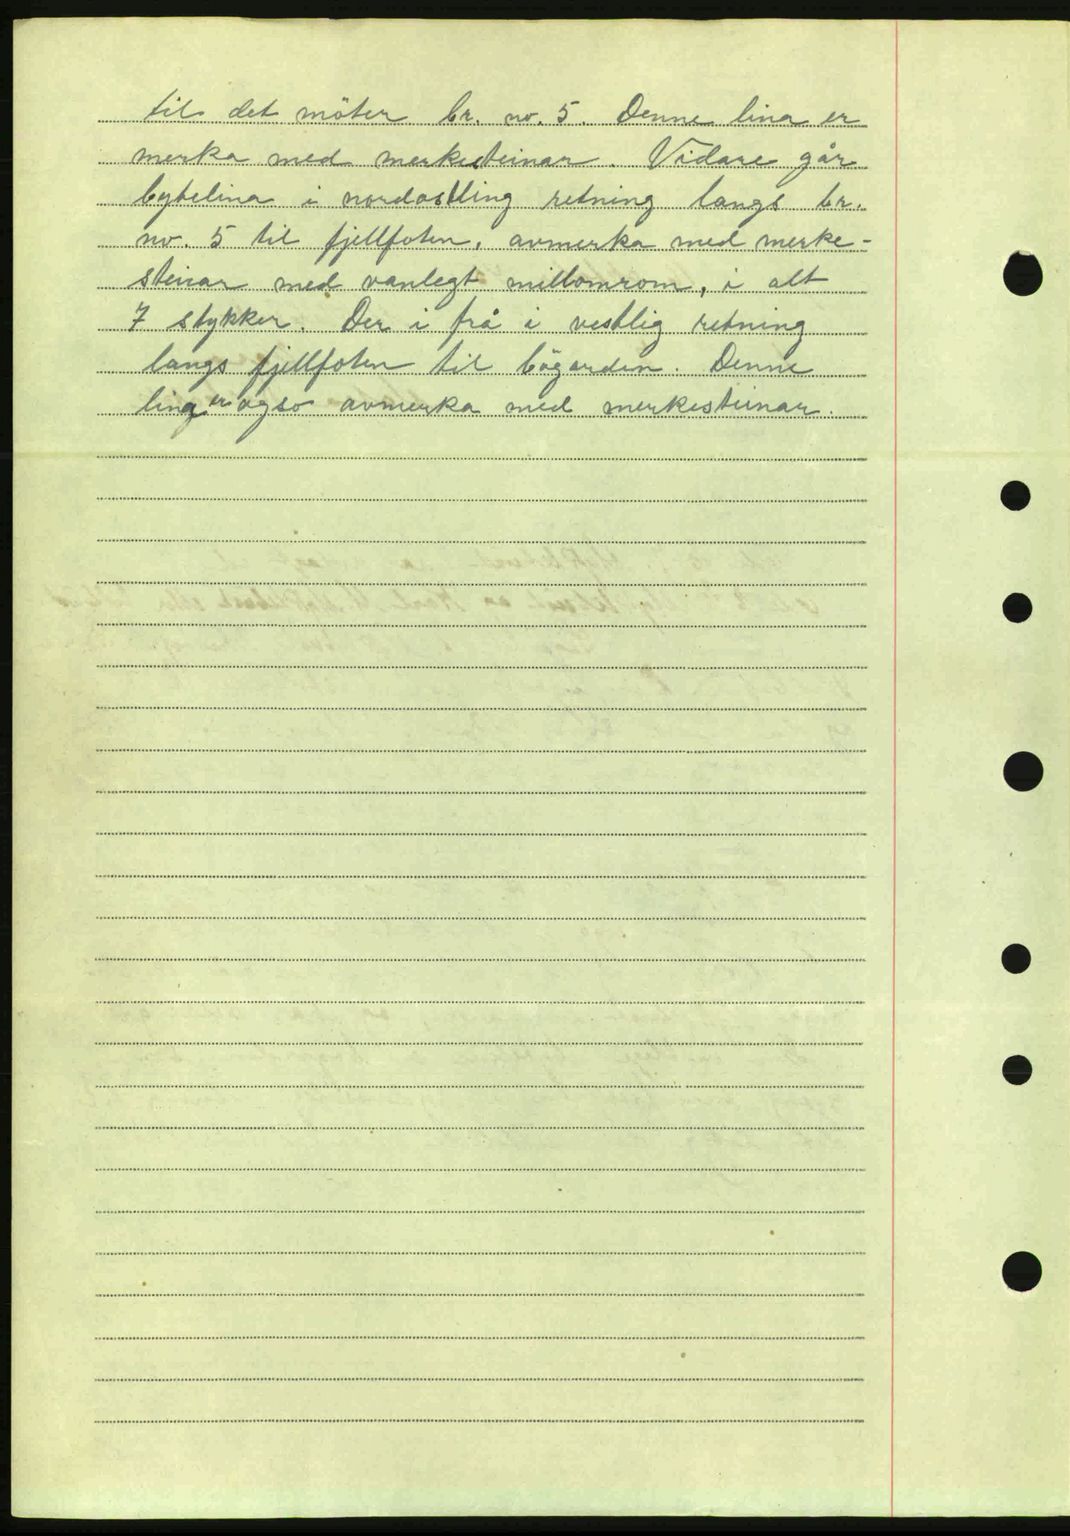 til det möter br. no. 5. Denne lina er
merka med merkesteinar. Vidare går
bytelina i nordaustling retning langs br.
no. 5 til fjellfoten, avmerka med merke-
steinar med vanlegt millomrom, i alt
7 stykker. Der i frå i vestlig retning
langs fjellfoten til bögarden. Denne
lina er ogso avmerka med merkesteinar.